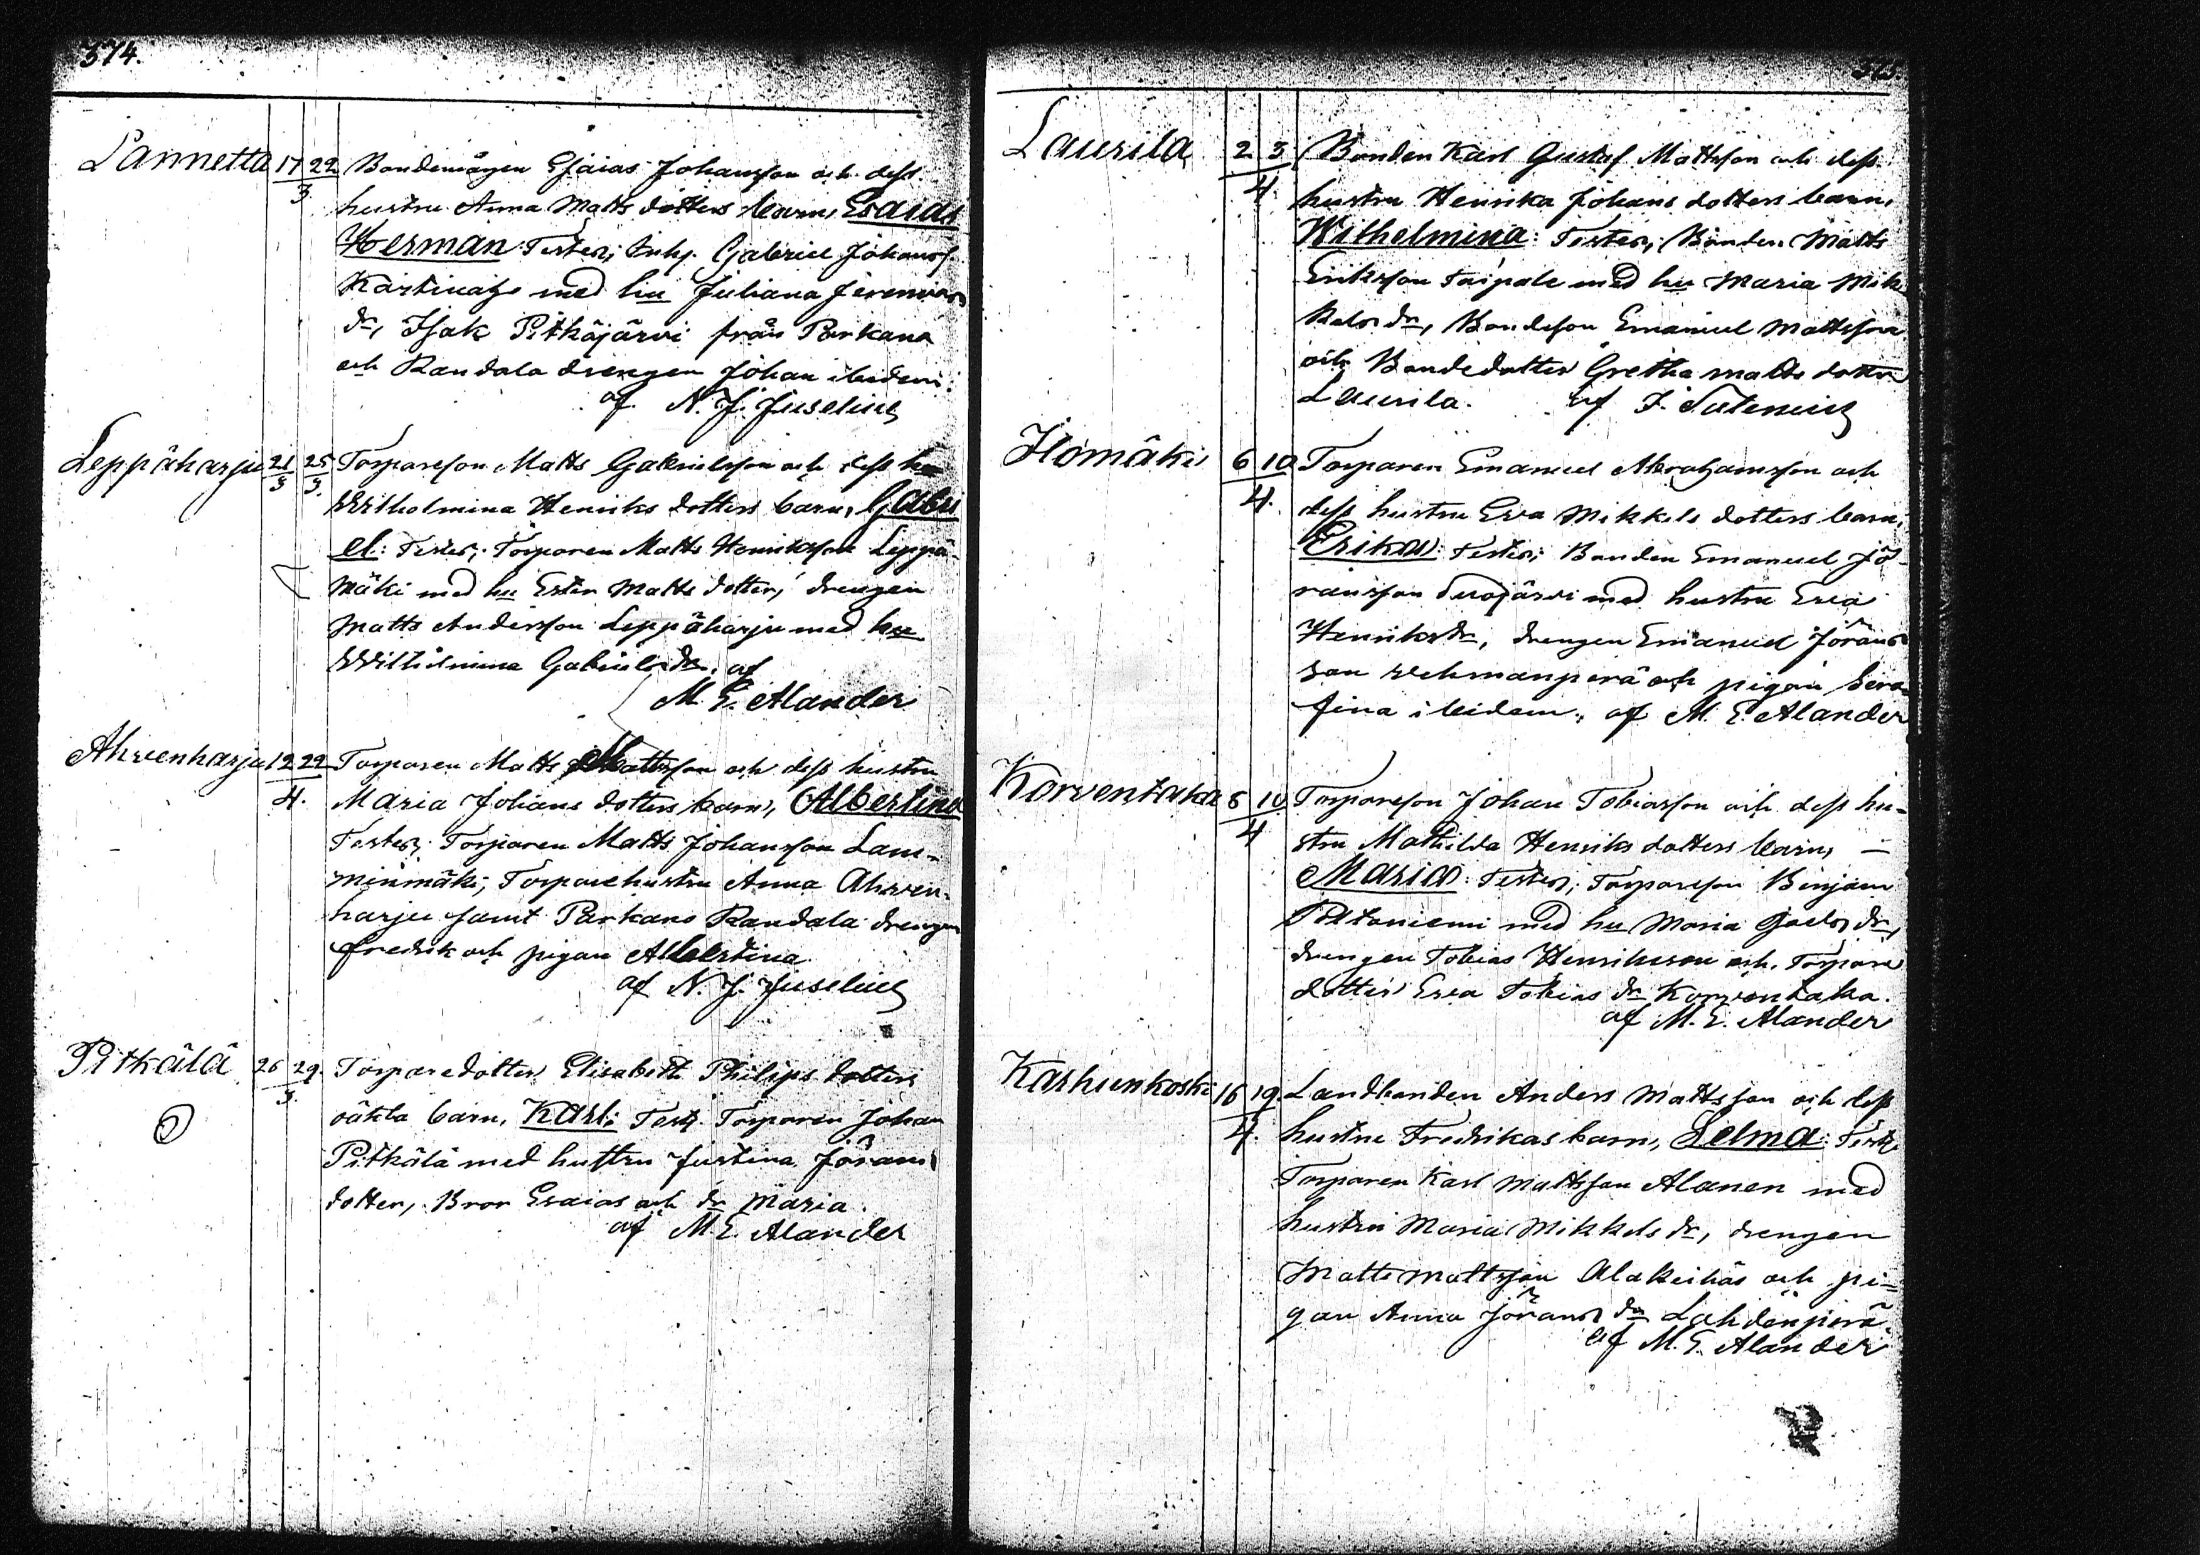 374.
Lannetta 17 22/3 Bondemågen Esaias Johansson och dess
hustru Anna Matts dotters barn, Esaias
Herman: Testes; Inhs. Gabriel Johanss.
med hu Juliana Jeremias
dr, Isak Pitkäjärvi från Parkano
och Randala drengen Johan ibidem.
af N. J. Juselius
Leppäharju 21/3 25/3. Torpareson Matts Gabrielsson och dess hu
Wilhelmina Henriks dotters barn, Gabri
el: Testes; Torparen Matts Henriksson Leppä-
mäki med hu Ester Matts dotter, drengen
Matts Andersson Leppäharju med hu
Wilhelmina Gabriels dr. af
M. E. Alander
Ahvenharju 12 22/4. Torparen Matts Mattsson och dess hustru
Maria Johans dotters barn, Albertina
Testes; Torparen Matts Johansson Lam-
minmäki, Torparehustru Anna Ahven-
harju samt Parkano Randala drengen
Fredrik och pigan Albertina
af N. J. Juselius
Pitkälä 26 29/3. Torparedotter Elisabeth Philips dotters
oäkta barn, Karl; Test. Torparen Johan
Pitkälä med hustru Justina Jörans
dotter, Bror Esaias och dr Maria.
af M. E. Alander
375.
Laurila 2 3/4. Bonden Karl Gustaf Mattsson och dess
hustru Henrika Johans dotters barn,
Wilhelmina: Testes; Bonden Matts
Eriksson Taipale med hu Maria Mik
kels dr, Bondeson Emanuel Mattsson
och Bondedotter Gretha Matts dotter
Laurila. af
Ilomäki 6 10/4. Torparen Emanuel Abrahamsson och
dess hustru Eva Mikkels dotters barn,
Erika: Testes; Bonden Emanuel Jö-
ransson Suojärvi med hustru Eva
Henriks dr, drengen Emanuel Jörans
son Vehmanperä och pigan Sera
fina ibidem, af M. E. Alander
Korventaka 6 10/4 Torpareson Johan Tobiasson och dess hu-
stru Mathilda Henriks dotters barn, –
Maria: Testes; Torpareson Benjam
Poltoniemi med hu Maria Joels dr,
drengen Tobias Henriksson och Torpare
dotter Eva Tobias dr Korventaka.
af M. E. Alander
Karhunkoski 16 19/4. Landbonden Anders Mattsson och dess
hustru Fredrikas barn, Selma: Test.
Torparen Karl Mattsson Alanen med
hustru Maria Mikkels dr, drengen
Matts Mattsson Alakeihäs och pi-
gan Anna Jörans dr Lahdenperä.
af M. E. Alander